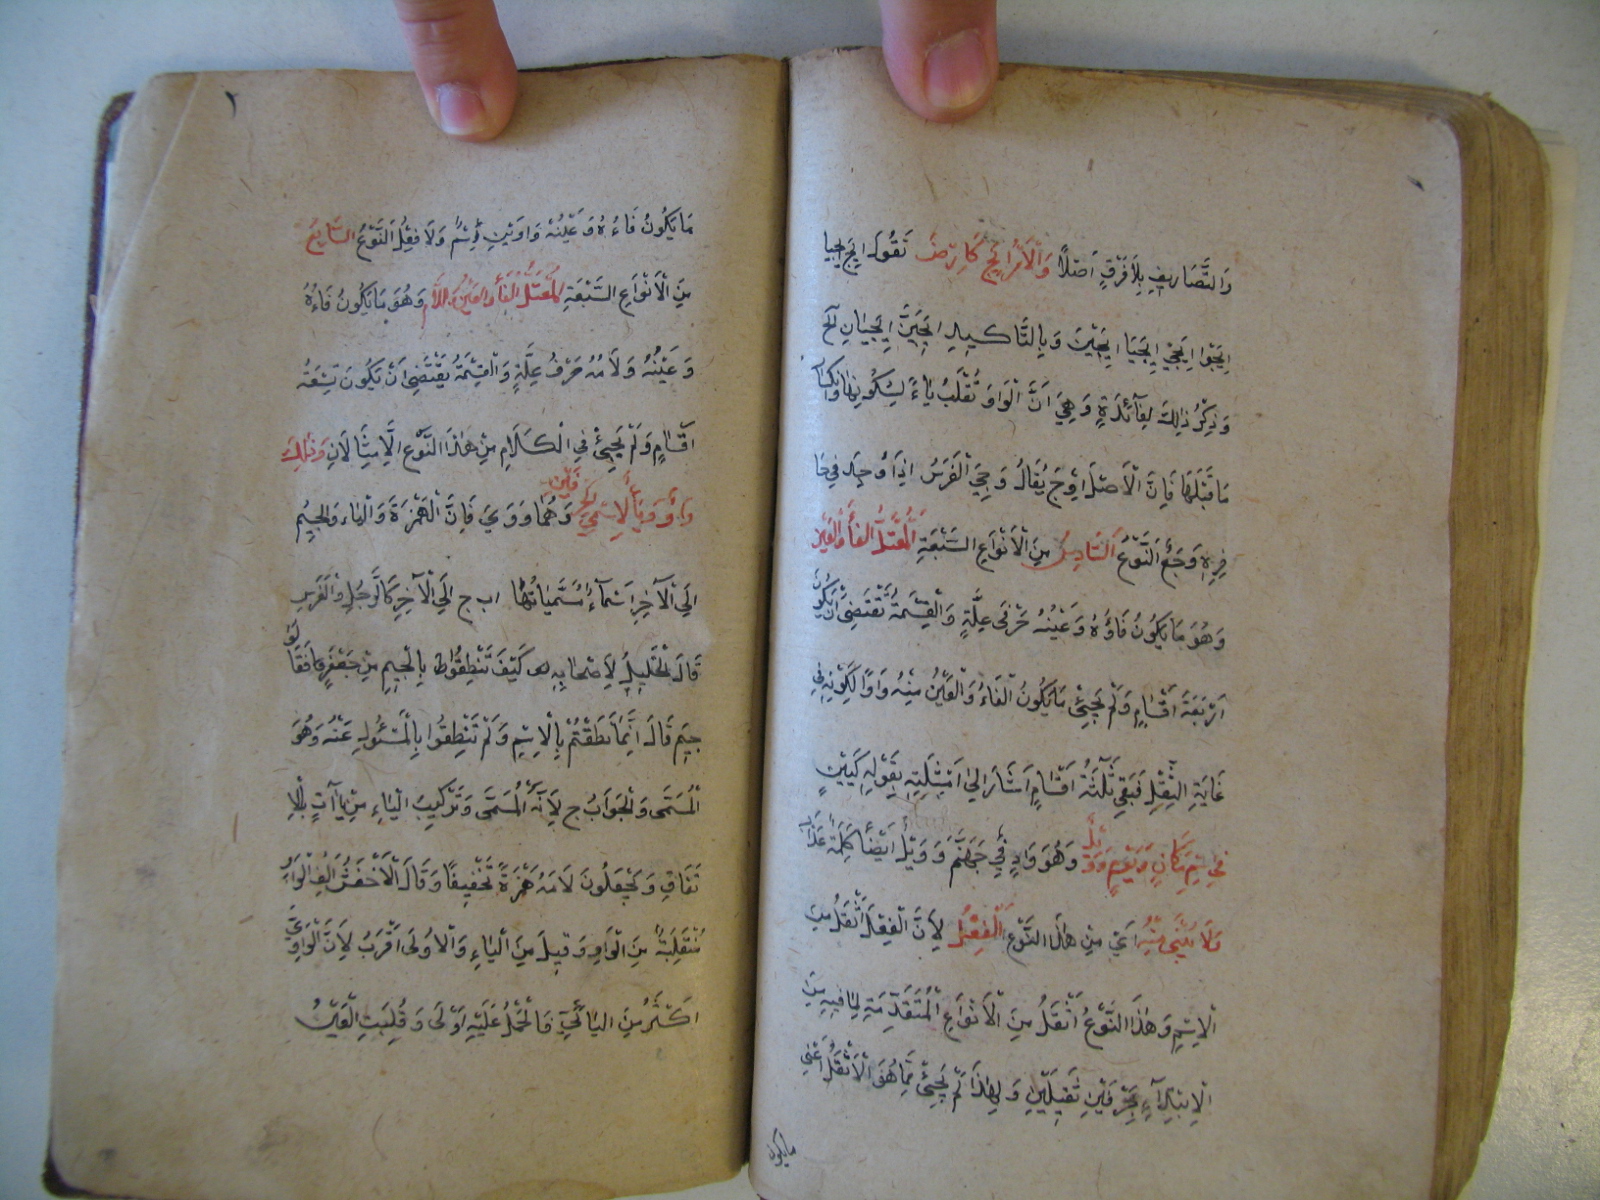 وَالتَّصَارِيفِ بِلَا فَرْقٍ اَصْلًا وَالْاَمْرُ اِيجَ كَاِرْضَ تَقُولُ اِيجَ اِيجِيَا
اِيجَوْا اِيجَيْ اِيجَيَا اِيجَيْنَ وَبِالتَّاكِيدِ اِيجَيَنَّ اِيجَيَانِّ الخ
وَذِكْرُ ذٰلِكَ لِفَائِدَةٍ وَهِيَ اَنَّ الْوَاوَ تُقْلَبُ يَاءً لِسُكُونِهَا وَانْكِسَارِ
مَا قَبْلَهَا فَاِنَّ الْاَصْلَ اِوْجَ يُقَالُ وَجِيَ الْفَرَسُ اِذَا وُجِدَ فِي حَا
فِرِهِ وَجَعٌ اَلنَّوْعُ السَّادِسُ مِنَ الْاَنْوَاعِ السَّبْعَةِ الْمُعْتَلُّ الْفَاءِ وَالْعَيْنِ
وَهُوَ مَا يَكُونُ فَاؤُهُ وَعَيْنُهُ حَرْفَيْ عِلَّةٍ وَالْقِسْمَةُ تَقْتَضِي اَنْ يَكُونَ
اَرْبَعَةَ اَقْسَامٍ وَلَمْ يَجِئْ مَا يَكُونُ الْفَاءُ وَالْعَيْنُ مِنْهُ وَاوًا لِكَوْنِهِ فِي
غَايَةِ الثِّقْلِ فَبَقِيَ ثَلٰثَةُ اَقْسَامٍ اَشَارَ اِلَى اَمْثِلَتِهِ بِقَوْلِهِ كَيَيْنٍ
فِي اسْمِ مَكَانٍ وَيَوْمٍ وَوَيْلٍ وَهُوَ وَادٍ فِي جَهَنَّمَ وَوَيْلٌ اَيْضًا كَلِمَةُ عَذَابٍ
وَلَا يُبْنَى مِنْهُ اَيْ مِنْ هٰذَا النَّوْعِ الْفِعْلُ لِاَنَّ الْفِعْلَ اَثْقَلُ مِنَ
الْاِسْمِ وَهٰذَا النَّوْعُ اَثْقَلُ مِنَ الْاَنْوَاعِ الْمُتَقَدِّمَةِ لِمَا فِيهِ مِنَ
الْاِبْتِدَاءِ بِحَرْفَيْنِ ثَقِيلَيْنِ وَلِهٰذَا لَمْ يَجِئْ مِمَّا هُوَ الْاَثْقَلُ اَعْنِي
مايكون
مَا يَكُونُ فَاءُهُ وَعَيْنُهُ وَاوَيْنِ اِسْمٌ وَلَا فِعْلٌ اَلنَّوْعُ السَّابِعُ
مِنَ الْاَنْوَاعِ السَّبْعَةِ الْمُعْتَلُّ الْفَاءِ وَالْعَيْنِ وَاللَّامِ وَهُوَ مَا يَكُونُ فَاءُهُ
وَعَيْنُهُ وَلَامُهُ حَرْفَ عِلَّةٍ وَالْقِسْمَةُ يَقْتَضِي اَنْ يَكُونَ تِسْعَةَ
اَقْسَامٍ وَلَمْ يَجِئْ فِي الْكَلَامِ مِنْ هٰذَا النَّوْعِ اِلَّا مِثَالَانِ وَذٰلِكَ
وَاوٌ وَيَاءٌ لِاِسْمَيِ الْحَرْفَيْنِ وَهُمَا وَوَيَ فَاِنَّ الْهَمْزَةَ وَالْيَاءَ وَالْجِيْمَ
اِلَى الْآخِرِ اَسْمَاءٌ مُسَمَّيَاتُهَا ا ب ج اِلَى الْآخِرِ كَالرَّجُلِ وَالْفَرَسِ
قَالَ الْخَلِيلُ لِاَصْحَابِهِ كَيْفَ تَنْطِقُونَ بِالْجِيمِ مِنْ جَعْفَرٍ فَقَالُوا
جِيمْ قَالَ اِنَّمَا نَطَقْتُمْ بِالْاِسْمِ وَلَمْ تَنْطِقُوا بِالْمَسْئُولِ عَنْهُ وَهُوَ
الْمُسَمَّى وَالْجَوَابُ ج لِاَنَّهُ الْمُسَمَّى وَتَرْكِيبُ الْيَاءِ مِنْ يَاآتٍ بِالْاِ
تِّفَاقِ وَيَجْعَلُونَ لَامَهُ هَمْزَةً تَخْفِيفًا وَقَالَ الْاَخْفَشُ اَلِفُ الْوَاوِ
مُنْقَلِبَةٌ مِنَ الْوَاوِ وَقِيلَ مِنَ الْيَاءِ وَالْاُولَى اَقْرَبُ لِاَنَّ الْوَاوِيَّ
اَكْثَرُ مِنَ الْيَائِيِّ فَالْحَمْلُ عَلَيْهِ اَوْلَى وَقُلِبَتِ الْعَيْنُ